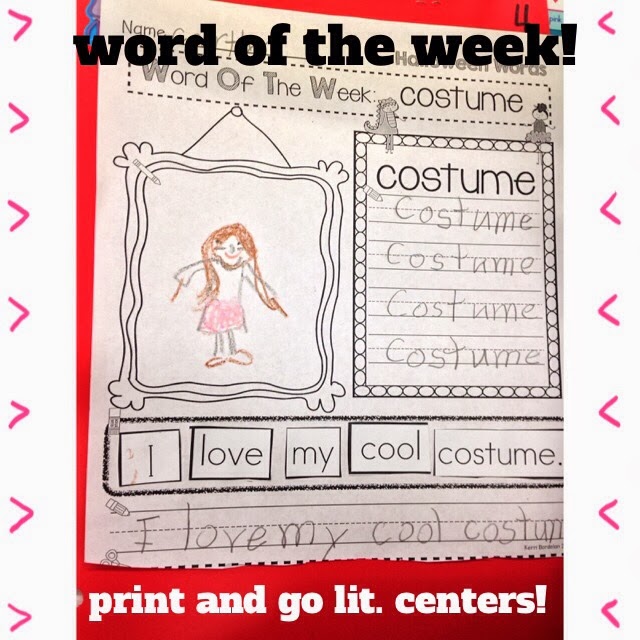 word of the week!
4
pink
Name
Halloween Words
Word Of The Week: costume
costume
Costume
Costume
Costume
Costume
I love my cool costume.
I love my cool costum
print and go lit. centers!